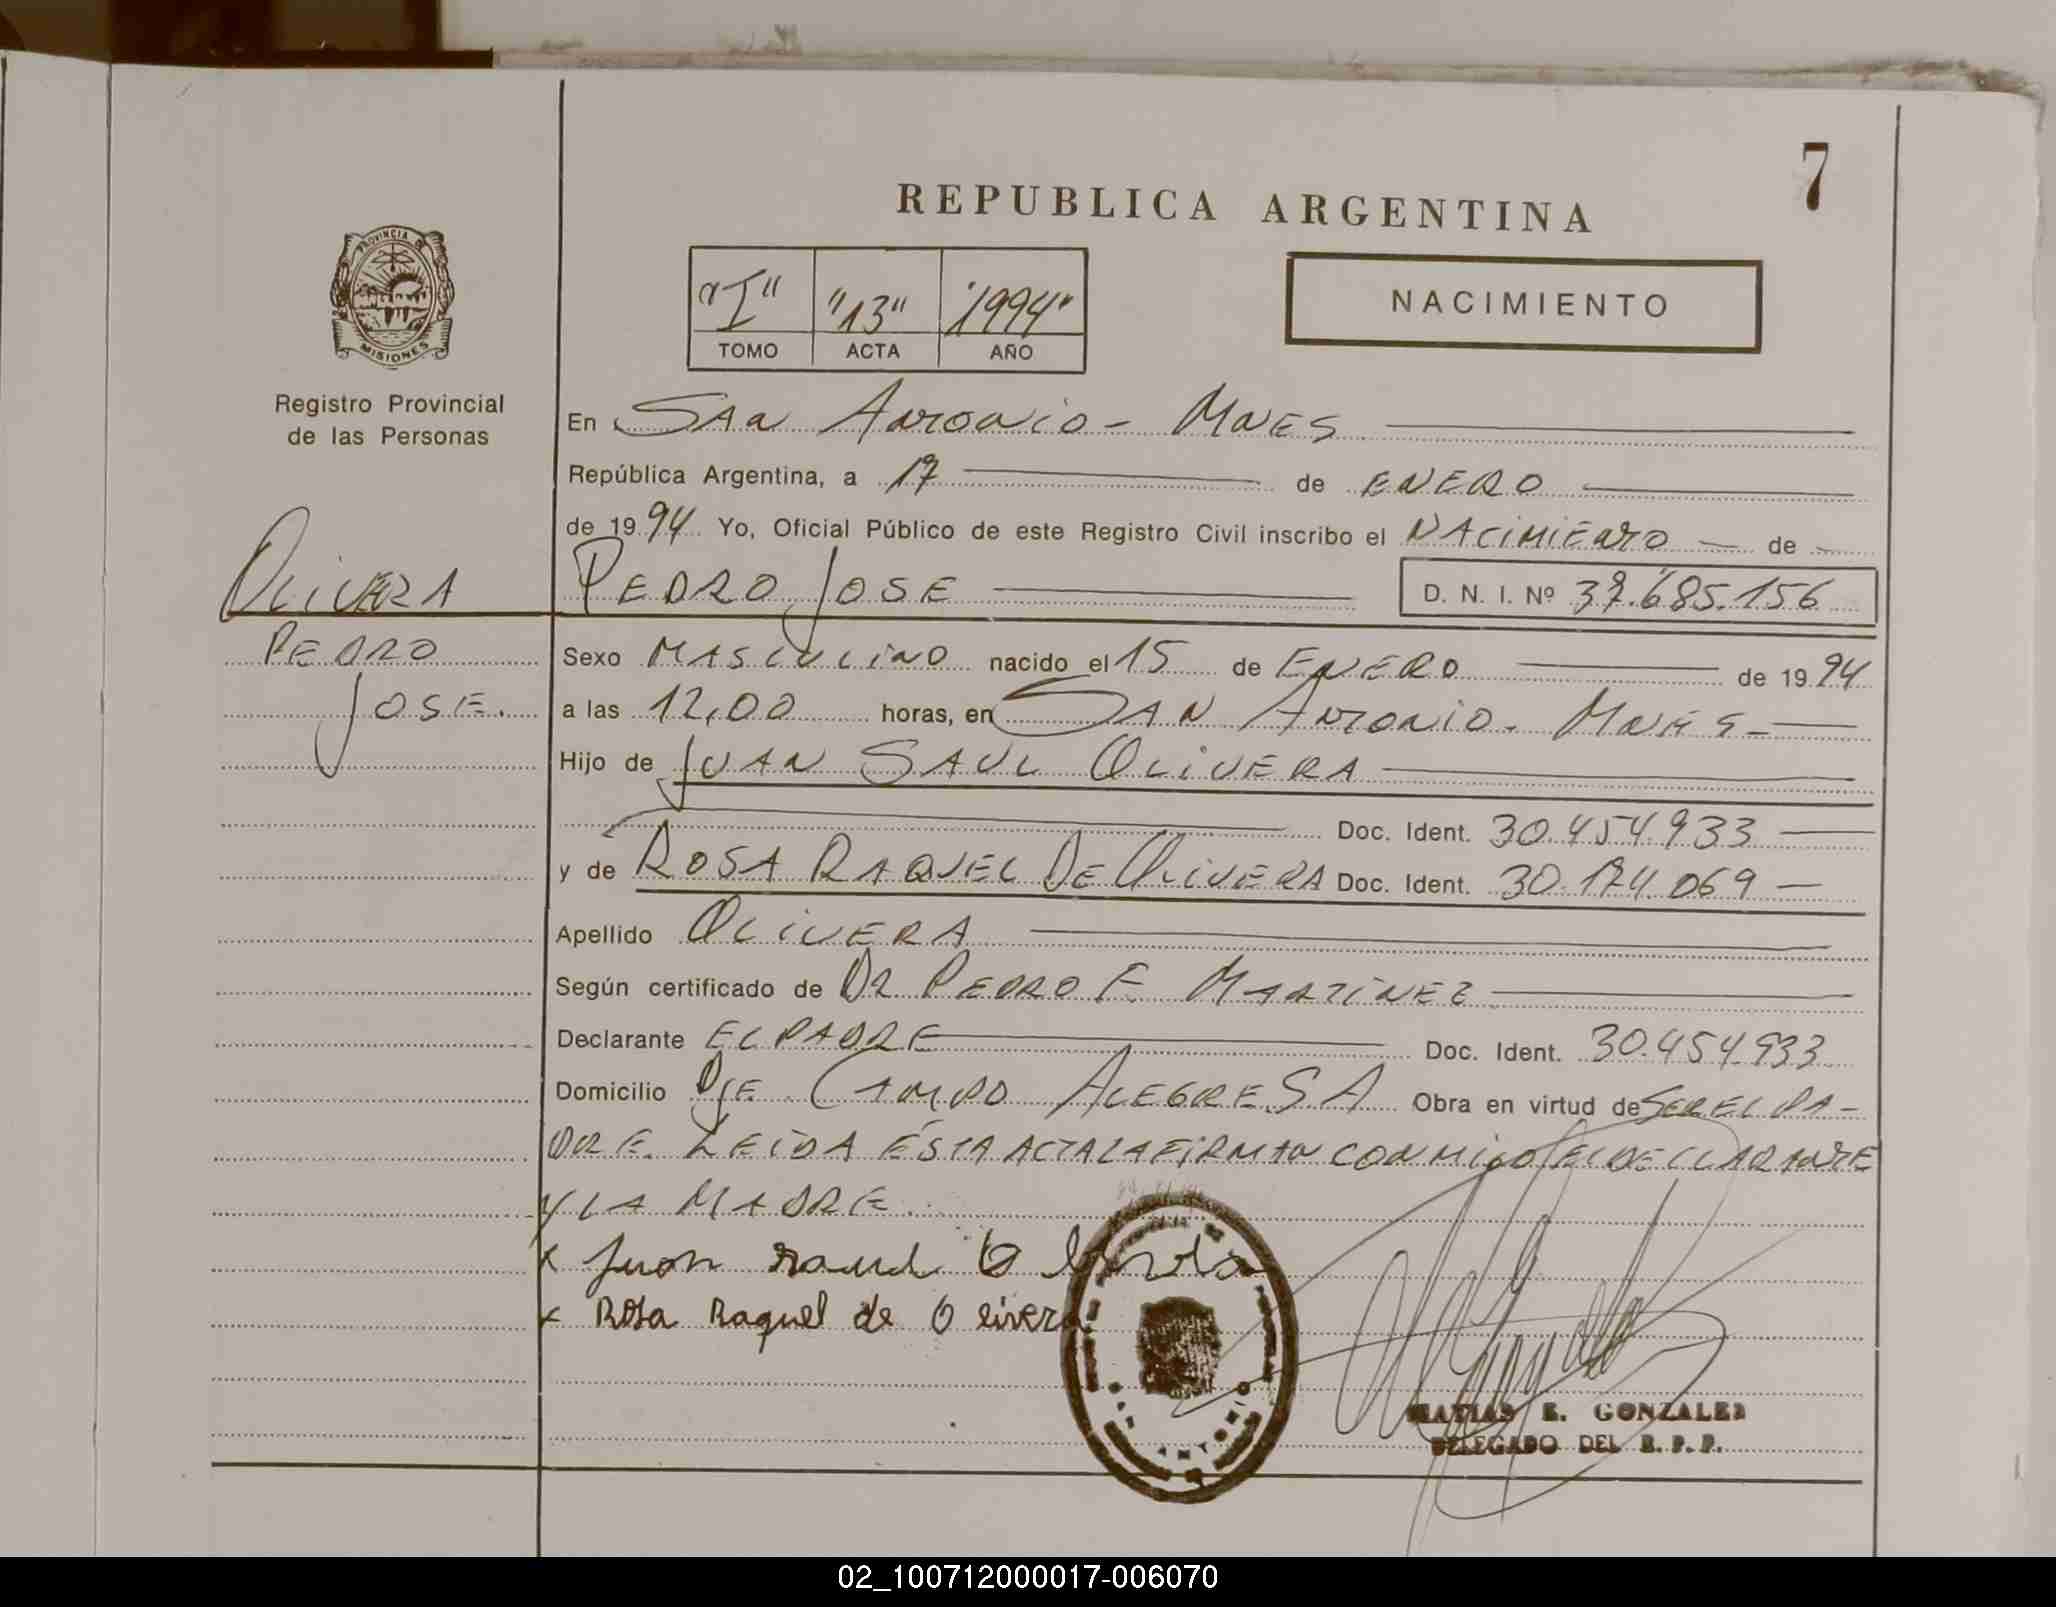 7
REPUBLICA ARGENTINA
PROVINCIA DE
MISIONES
"I" "13" "1994"
TOMO ACTA AÑO
NACIMIENTO
Registro Provincial
de las Personas
En SAN ANTONIO - MNES
República Argentina, a 17 de ENERO
de 1994 Yo, Oficial Público de este Registro Civil inscribo el NACIMIENTO de
OLIVERA
PEDRO JOSE D. N. I. Nº 37.685.156
PEDRO
JOSE.
Sexo MASCULINO nacido el 15 de ENERO de 1994
a las 12,00 horas, en SAN ANTONIO - MNES -
Hijo de JUAN SAUL OLIVERA
Doc. Ident. 30.454.933
y de ROSA RAQUEL DE OLIVERA Doc. Ident. 30.174.069 -
Apellido OLIVERA
Según certificado de DR PEDRO F. MARTÍNEZ
Declarante EL PADRE Doc. Ident. 30.454.933
Domicilio PJE. CAMPO ALEGRE S.A Obra en virtud de SER EL PA-
DRE. LEIDA ÉSTA ACTA LA FIRMAN CONMIGO EL DECLARANTE
Y LA MADRE.
x Juan
x Rosa Raquel de Olivera
MATIAS E. GONZALEZ
DELEGADO DEL R. P. P.
02_100712000017-006070